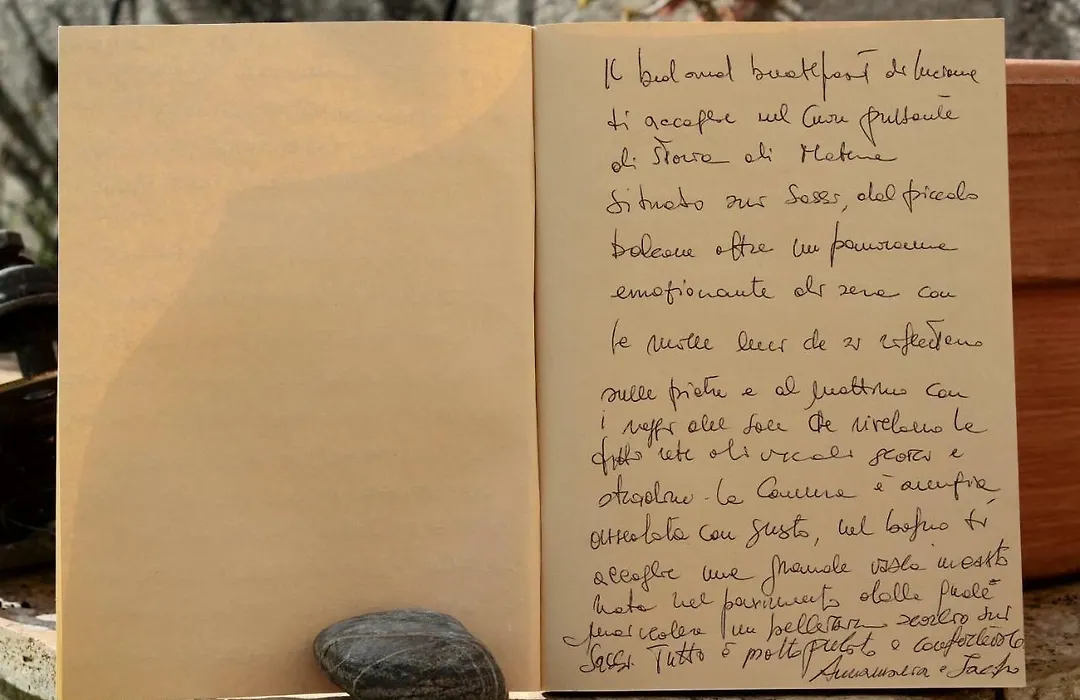 Il bed and breakfast di Luciana
ti accoglie nel Cuore pulsante
di Storia di Matera
Situato sui Sassi, dal piccolo
balcone offre un panorama
emozionante di sera con
le mille luci che si riflettono
sulle pietre e al mattino con
i raggi del Sole che rivelano la
fitta rete di vicoli scorci e
stradine. La Camera è ampia
arredata con gusto, nel bagno ti
accoglie una grande vasca incasto
nata nel pavimento dalla quale
puoi vedere un bellissimo scorcio sui
Sassi. Tutto è molto pulito e confortevole
Annamaria e